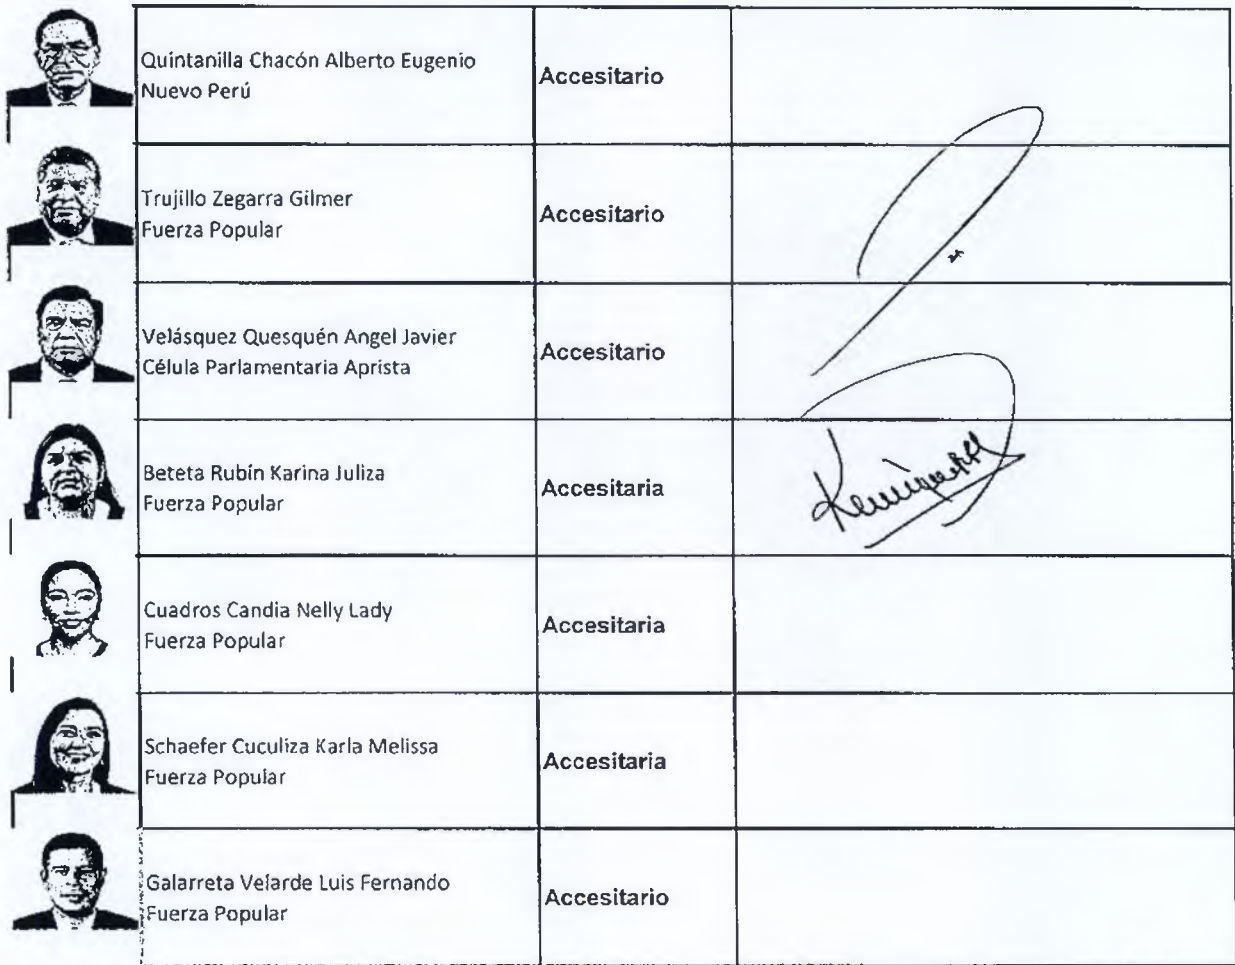 Quintanilla Chacón Alberto Eugenio
Nuevo Perú
Accesitario
Trujillo Zegarra Gilmer
Fuerza Popular
Accesitario
Velásquez Quesquén Angel Javier
Célula Parlamentaria Aprista
Accesitario
Beteta Rubín Karina Juliza
Fuerza Popular
Accesitaria
Cuadros Candia Nelly Lady
Fuerza Popular
Accesitaria
Schaefer Cuculiza Karla Melissa
Fuerza Popular
Accesitaria
Galarreta Velarde Luis Fernando
Fuerza Popular
Accesitario